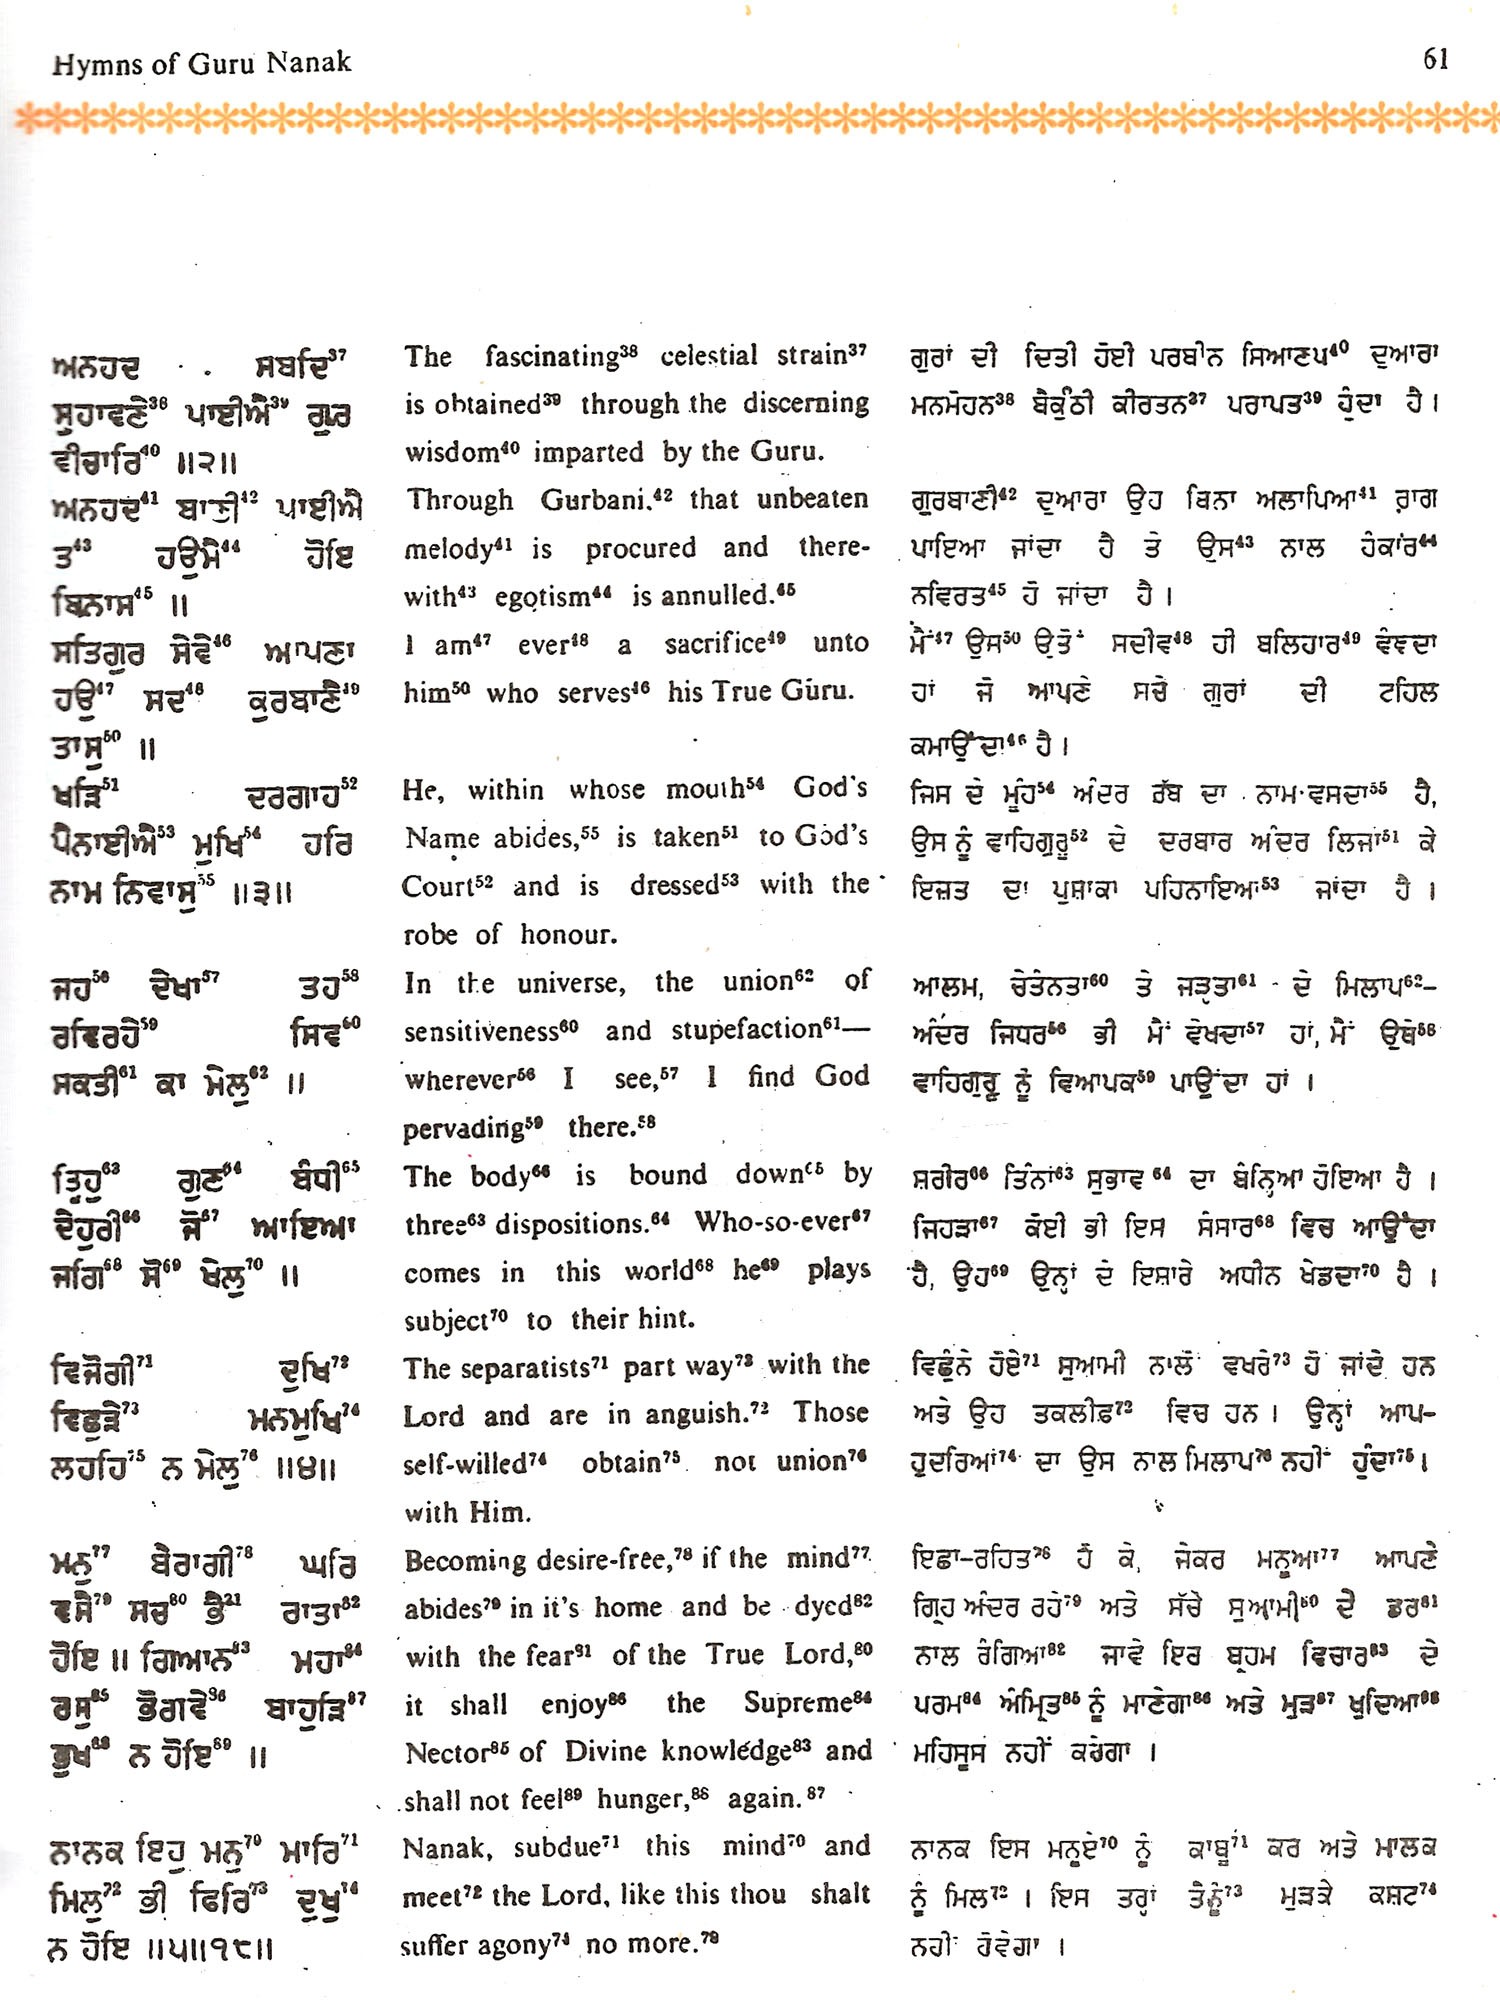 Hymns of Guru Nanak
61
ਅਨਹਦ ਸਬਦਿ³⁷
ਸੁਹਾਵਣੇ³⁸ ਪਾਈਐ³⁹ ਗੁਰ
ਵੀਚਾਰਿ⁴⁰ ॥੨॥
ਅਨਹਦ⁴¹ ਬਾਣੀ⁴² ਪਾਈਐ
ਤ⁴³ ਹਉਮੈ⁴⁴ ਹੋਇ
ਬਿਨਾਸ⁴⁵ ॥
ਸਤਿਗੁਰ ਸੇਵੇ⁴⁶ ਆਪਣਾ
ਹਉ⁴⁷ ਸਦ⁴⁸ ਕੁਰਬਾਣੈ⁴⁹
ਤਾਸੁ⁵⁰ ॥
ਖੜਿ⁵¹ ਦਰਗਾਹ⁵²
ਪੈਨਾਈਐ⁵³ ਮੁਖਿ⁵⁴ ਹਰਿ
ਨਾਮ ਨਿਵਾਸੁ⁵⁵ ॥੩॥
ਜਹ⁵⁶ ਦੇਖਾ⁵⁷ ਤਹ⁵⁸
ਰਵਿਰਹੇ⁵⁹ ਸਿਵ⁶⁰
ਸਕਤੀ⁶¹ ਕਾ ਮੇਲੁ⁶² ॥
ਤ੍ਰਿਹੁ⁶³ ਗੁਣ⁶⁴ ਬੰਧੀ⁶⁵
ਦੇਹੁਰੀ⁶⁶ ਜੋ⁶⁷ ਆਇਆ
ਜਗਿ⁶⁸ ਸੋ⁶⁹ ਖੇਲੁ⁷⁰ ॥
ਵਿਜੋਗੀ⁷¹ ਦੁਖਿ⁷²
ਵਿਛੁੜੇ⁷³ ਮਨਮੁਖਿ⁷⁴
ਲਹਹਿ⁷⁵ ਨ ਮੇਲੁ⁷⁶ ॥੪॥
ਮਨੁ⁷⁷ ਬੈਰਾਗੀ⁷⁸ ਘਰਿ
ਵਸੈ⁷⁹ ਸਚ⁸⁰ ਭੈ²¹ ਰਾਤਾ⁸²
ਹੋਇ ॥ ਗਿਆਨ⁸³ ਮਹਾ⁸⁴
ਰਸੁ⁸⁵ ਭੋਗਵੇ⁸⁶ ਬਾਹੁੜਿ⁸⁷
ਭੁਖ⁸⁸ ਨ ਹੋਇ⁸⁹ ॥
ਨਾਨਕ ਇਹੁ ਮਨੁ⁷⁰ ਮਾਰਿ⁷¹
ਮਿਲੁ⁷² ਭੀ ਫਿਰਿ⁷³ ਦੁਖੁ⁷⁴
ਨ ਹੋਇ ॥੫॥੧੮॥
The fascinating³⁸ celestial strain³⁷
is obtained³⁹ through the discerning
wisdom⁴⁰ imparted by the Guru.
Through Gurbani,⁴² that unbeaten
melody⁴¹ is procured and there-
with⁴³ egotism⁴⁴ is annulled.⁴⁵
I am⁴⁷ ever⁴⁸ a sacrifice⁴⁹ unto
him⁵⁰ who serves⁴⁶ his True Guru.
He, within whose mouth⁵⁴ God's
Name abides,⁵⁵ is taken⁵¹ to God's
Court⁵² and is dressed⁵³ with the
robe of honour.
In the universe, the union⁶² of
sensitiveness⁶⁰ and stupefaction⁶¹—
wherever⁵⁶ I see,⁵⁷ I find God
pervading⁵⁹ there.⁵⁸
The body⁶⁶ is bound down⁶⁵ by
three⁶³ dispositions.⁶⁴ Who-so-ever⁶⁷
comes in this world⁶⁸ he⁶⁹ plays
subject⁷⁰ to their hint.
The separatists⁷¹ part way⁷³ with the
Lord and are in anguish.⁷² Those
self-willed⁷⁴ obtain⁷⁵ not union⁷⁶
with Him.
Becoming desire-free,⁷⁸ if the mind⁷⁷
abides⁷⁹ in it's home and be dyed⁸²
with the fear⁸¹ of the True Lord,⁸⁰
it shall enjoy⁸⁶ the Supreme⁸⁴
Nector⁸⁵ of Divine knowledge⁸³ and
shall not feel⁸⁹ hunger,⁸⁸ again.⁸⁷
Nanak, subdue⁷¹ this mind⁷⁰ and
meet⁷² the Lord, like this thou shalt
suffer agony⁷⁴ no more.⁷³
ਗੁਰਾਂ ਦੀ ਦਿਤੀ ਹੋਈ ਪਰਬੀਨ ਸਿਆਣਪ⁴⁰ ਦੁਆਰਾ
ਮਨਮੋਹਨ³⁸ ਬੈਕੁੰਠੀ ਕੀਰਤਨ³⁷ ਪਰਾਪਤ³⁹ ਹੁੰਦਾ ਹੈ।
ਗੁਰਬਾਣੀ⁴² ਦੁਆਰਾ ਉਹ ਬਿਨਾ ਅਲਾਪਿਆ⁴¹ ਰਾਗ
ਪਾਇਆ ਜਾਂਦਾ ਹੈ ਤੇ ਉਸ⁴³ ਨਾਲ ਹੰਕਾਰ⁴⁴
ਨਵਿਰਤ⁴⁵ ਹੋ ਜਾਂਦਾ ਹੈ।
ਮੈਂ⁴⁷ ਉਸ⁵⁰ ਉਤੋਂ ਸਦੀਵ⁴⁸ ਹੀ ਬਲਿਹਾਰ⁴⁹ ਵੰਞਦਾ
ਹਾਂ ਜੋ ਆਪਣੇ ਸਚੇ ਗੁਰਾਂ ਦੀ ਟਹਿਲ
ਕਮਾਉਂਦਾ⁴⁶ ਹੈ।
ਜਿਸ ਦੇ ਮੂੰਹ⁵⁴ ਅੰਦਰ ਰੱਬ ਦਾ ਨਾਮ ਵਸਦਾ⁵⁵ ਹੈ,
ਉਸ ਨੂੰ ਵਾਹਿਗੁਰੂ⁵² ਦੇ ਦਰਬਾਰ ਅੰਦਰ ਲਿਜਾ⁵¹ ਕੇ
ਇਜ਼ਤ ਦਾ ਪੁਸ਼ਾਕਾ ਪਹਿਨਾਇਆ⁵³ ਜਾਂਦਾ ਹੈ।
ਆਲਮ, ਚੇਤੰਨਤਾ⁶⁰ ਤੇ ਜੜ੍ਹਤਾ⁶¹ ਦੇ ਮਿਲਾਪ⁶²–
ਅੰਦਰ ਜਿਧਰ⁵⁶ ਭੀ ਮੈਂ ਵੇਖਦਾ⁵⁷ ਹਾਂ, ਮੈਂ ਉਥੇ⁵⁸
ਵਾਹਿਗੁਰੂ ਨੂੰ ਵਿਆਪਕ⁵⁹ ਪਾਉਂਦਾ ਹਾਂ।
ਸ਼ਰੀਰ⁶⁶ ਤਿੰਨਾਂ⁶³ ਸੁਭਾਵ⁶⁴ ਦਾ ਬੰਨ੍ਹਿਆ ਹੋਇਆ ਹੈ।
ਜਿਹੜਾ⁶⁷ ਕੋਈ ਭੀ ਇਸ ਸੰਸਾਰ⁶⁸ ਵਿਚ ਆਉਂਦਾ
ਹੈ, ਉਹ⁶⁹ ਉਨ੍ਹਾਂ ਦੇ ਇਸ਼ਾਰੇ ਅਧੀਨ ਖੇਡਦਾ⁷⁰ ਹੈ।
ਵਿਛੁੰਨੇ ਹੋਏ⁷¹ ਸੁਆਮੀ ਨਾਲੋਂ ਵਖਰੇ⁷³ ਹੋ ਜਾਂਦੇ ਹਨ
ਅਤੇ ਉਹ ਤਕਲੀਫ਼⁷² ਵਿਚ ਹਨ। ਉਨ੍ਹਾਂ ਆਪ–
ਹੁਦਰਿਆਂ⁷⁴ ਦਾ ਉਸ ਨਾਲ ਮਿਲਾਪ⁷⁶ ਨਹੀਂ ਹੁੰਦਾ⁷⁵।
ਇਛਾ–ਰਹਿਤ⁷⁸ ਹੋ ਕੇ, ਜੇਕਰ ਮਨੂਆ⁷⁷ ਆਪਣੇ
ਗ੍ਰਿਹ ਅੰਦਰ ਰਹੇ⁷⁹ ਅਤੇ ਸੱਚੇ ਸੁਆਮੀ⁸⁰ ਦੇ ਡਰ⁸¹
ਨਾਲ ਰੰਗਿਆ⁸² ਜਾਵੇ ਇਰ ਬ੍ਰਹਮ ਵਿਚਾਰ⁸³ ਦੇ
ਪਰਮ⁸⁴ ਅੰਮ੍ਰਿਤ⁸⁵ ਨੂੰ ਮਾਣੇਗਾ⁸⁶ ਅਤੇ ਮੁੜ⁸⁷ ਖੁਦਿਆ⁸⁸
ਮਹਿਸੂਸ ਨਹੀਂ ਕਰੇਗਾ।
ਨਾਨਕ ਇਸ ਮਨੂਏ⁷⁰ ਨੂੰ ਕਾਬੂ⁷¹ ਕਰ ਅਤੇ ਮਾਲਕ
ਨੂੰ ਮਿਲ⁷²। ਇਸ ਤਰ੍ਹਾਂ ਤੈਨੂੰ⁷³ ਮੁੜਕੇ ਕਸ਼ਟ⁷⁴
ਨਹੀਂ ਹੋਵੇਗਾ।